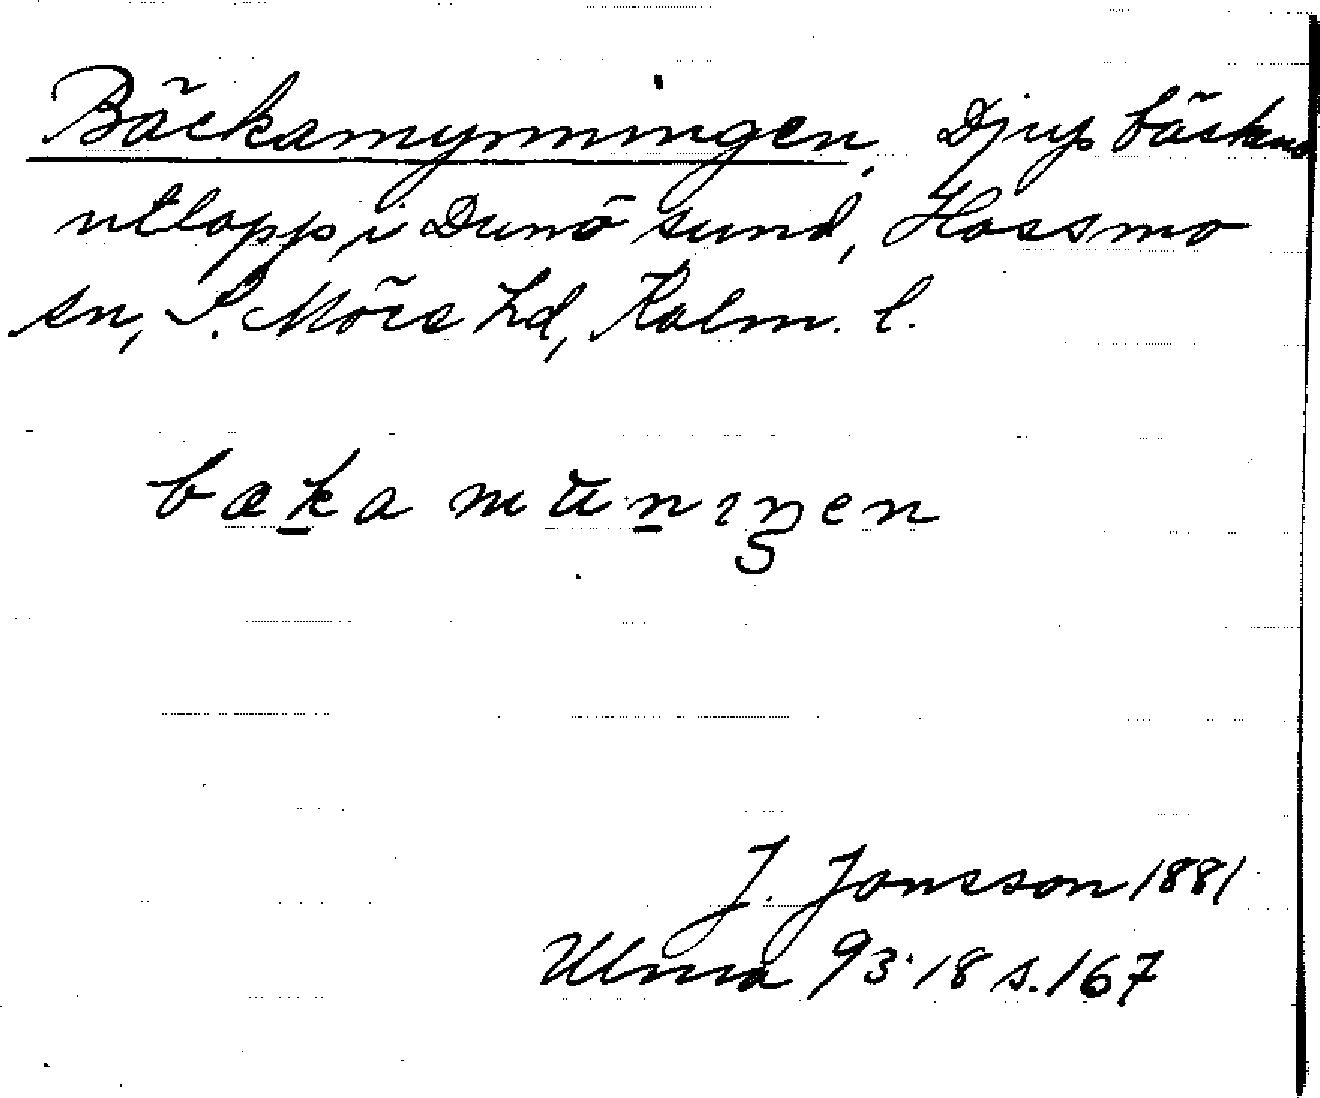 Bäckamynningen, Djup bäckens
utlopp i Dunö sund, Hossmo
sn, S. Möre hd, Kalm. l.
bækamüniŋen
J. Jonsson 1881
Ulma 93:18 s. 167